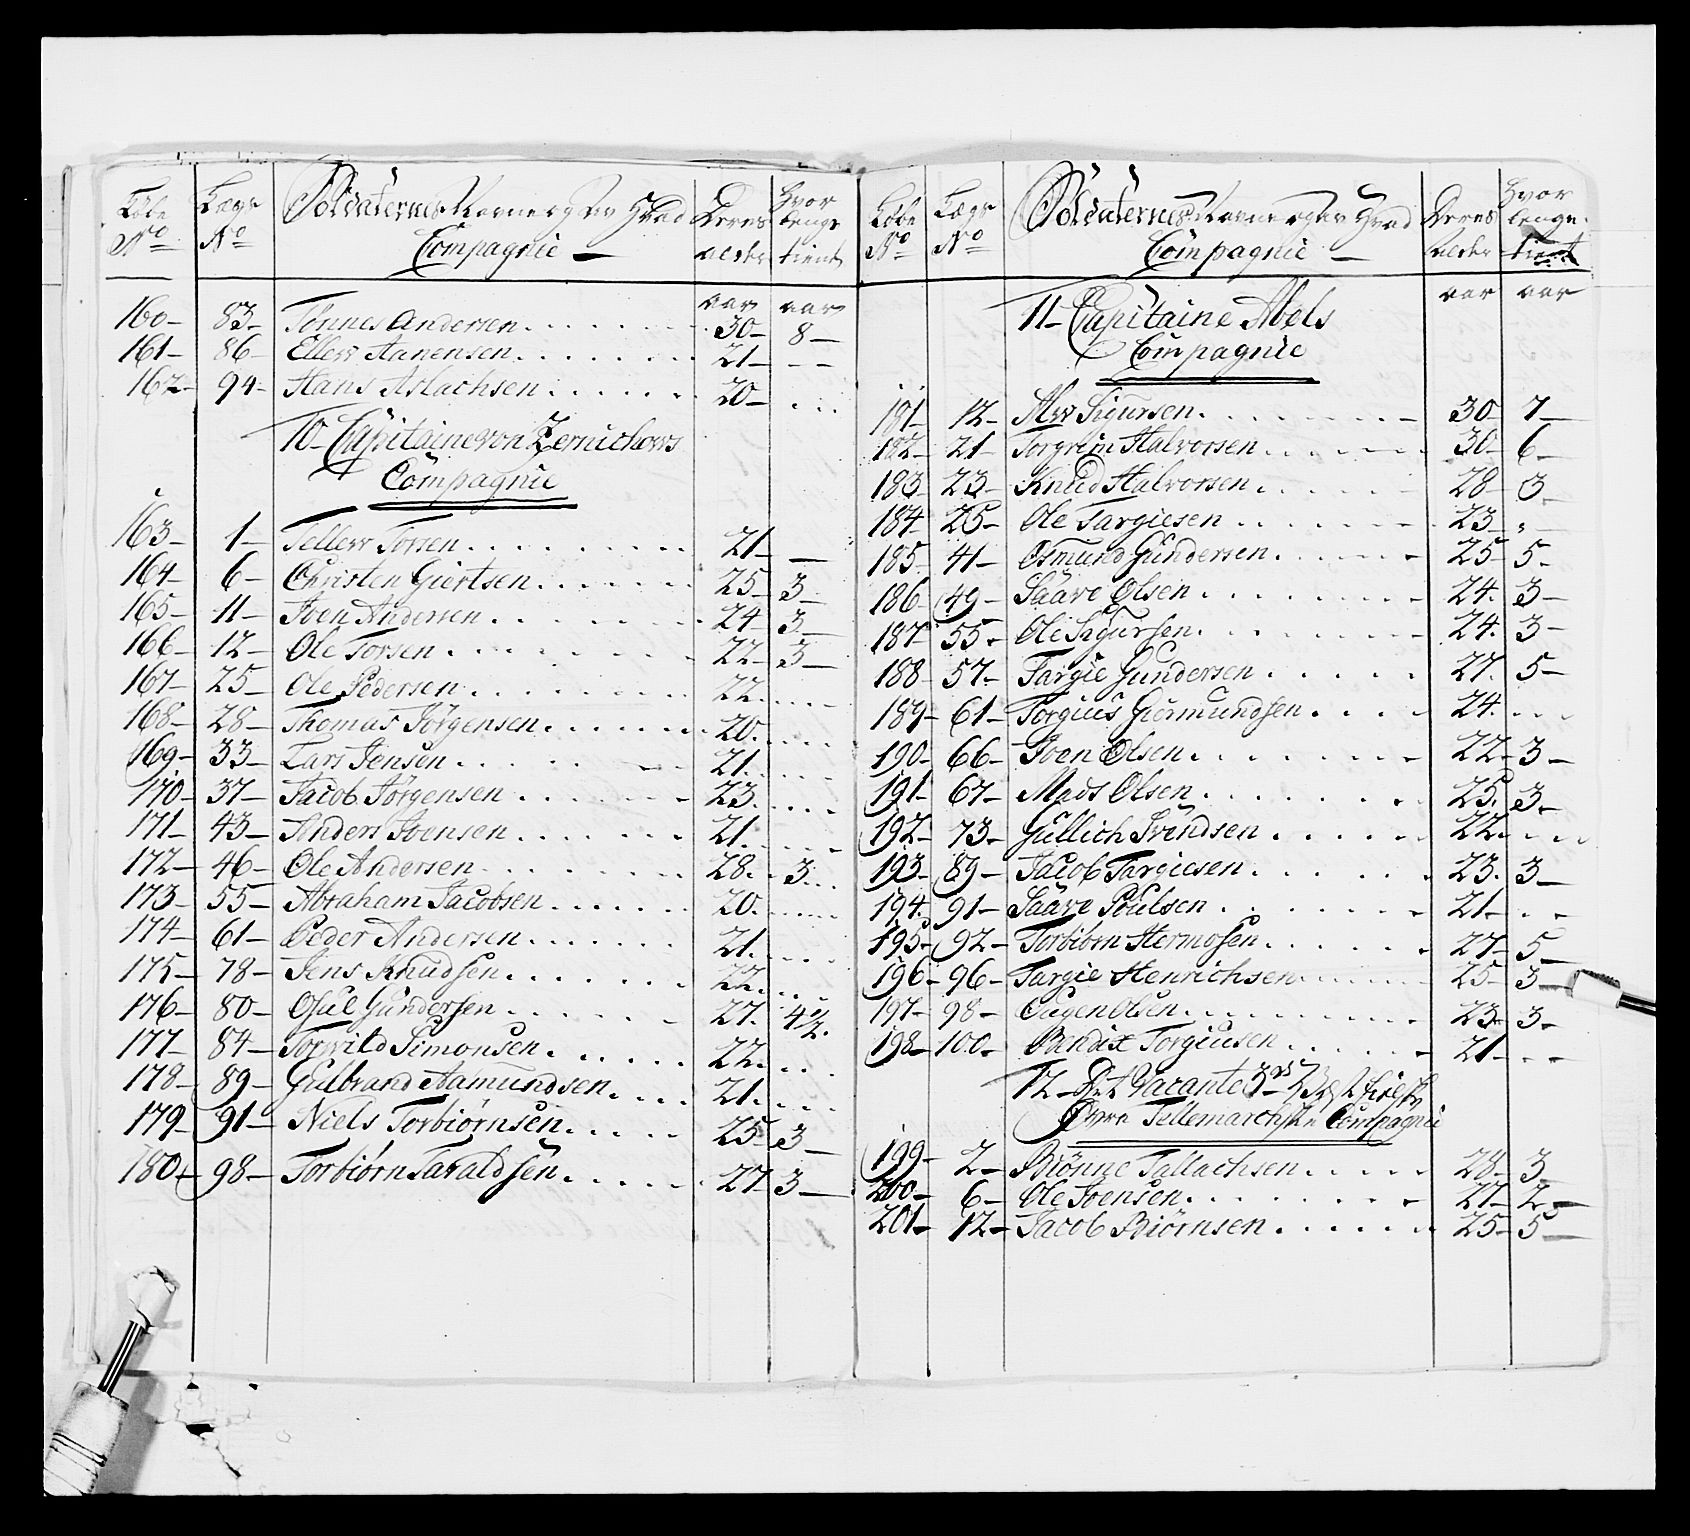 Løbe No Lægs No Soldaternes Navne og der Hved Compagnie Deres alder Hvor lenge tient
aar aar
160 83 Tönnes Andersen 30 8
161 86 Ellew Aanensen 21 --
162 94 Hans Aslachsen 20 ...
10 Capitaine von Zernichows
Compagnie
163 1 Tellew Torsen 21 —
164 6 Christen Giertsen 25 3
165 11 Joen Andersen 24 3
166 12 Ole Torsen 22 3
167 25 Ole Pedersen 22 ...
168 28 Thomas Jörgensen 20 ...
169 33 Lars Jensen 21 ...
170 37 Jacob Jörgensen 23 ...
171 43 Anders Joensen 21 ...
172 46 Ole Andersen 28 3
173 55 Abraham Jacobsen 20 ...
174 61 Peder Andersen 21 ...
175 78 Jens Knudsen 22 ...
176 80 Osul Gundersen 27 4 1/2
177 84 Torwild Simonsen 22 ...
178 89 Gulbrand Aamundsen 21 ...
179 91 Niels Torbiørnsen 25 3
180 98 Torbiørn Taraldsen 27 3
Løbe No Lægs No Soldaternes Navne og der Hved Compagnie Deres alder Hvor lenge tient
aar aar
11 Capitaine Abels
Compagnie
181 12 Alw Sigursen 30 7
182 21 Torgrim Halvorsen 30 6
183 23 Knud Halvorsen 28 3
184 25 Ole Targiesen 23 "
185 41 Osmund Gundersen 25 5
186 49 Saave Olsen 24 3
187 55 Ole Sigursen 24 3
188 57 Targie Gundersen 27 5
189 61 Torgius Giermundsen 24 ...
190 66 Joen Olsen 22 3
191 67 Mads Olsen 25 3
192 73 Gullich Svendsen 22 ...
193 89 Jacob Targiesen 23 3
194 91 Saave Poulsen 21 ..
195 92 Torbiørn Hermosen 27 5
196 96 Targie Henrichsen 25 3
197 98 Ougen Olsen 23 3
198 100 Bendix Torgiusen 21 ...
12 Det Vacante 3die
Øvre Tellemarchske Compagnie
199 2 Biönne Tallachsen 28 3
200 6 Ole Joensen 27 2
201 12 Jacob Biörnsen 25 5